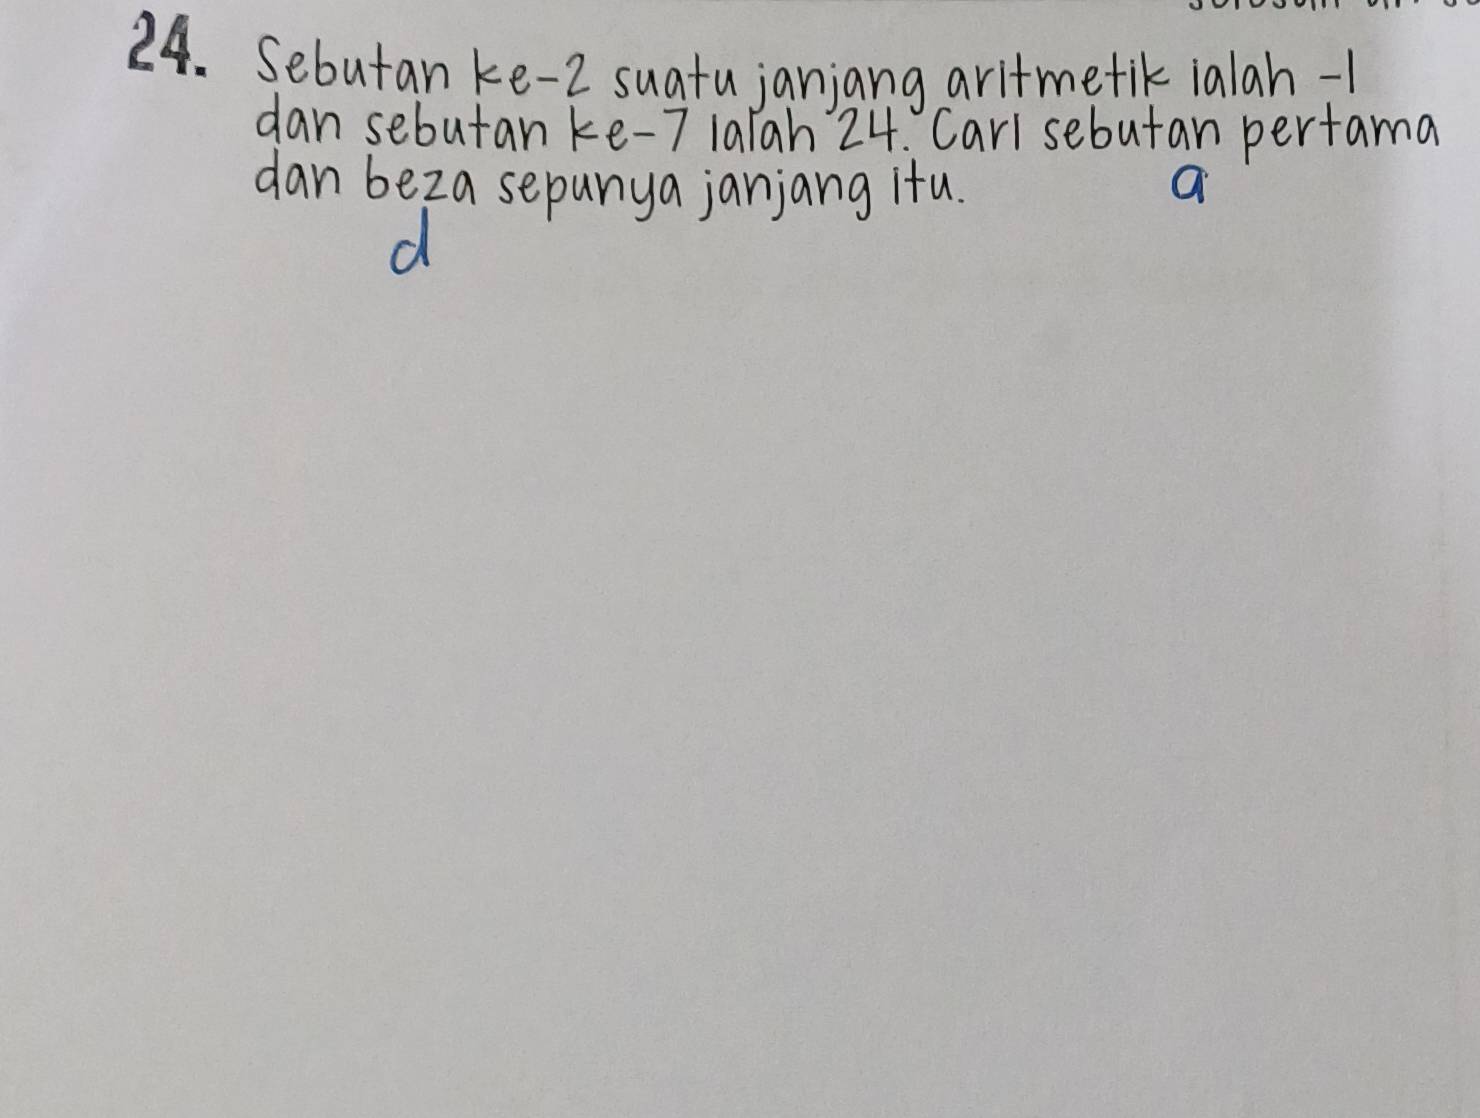 24. Sebutan ke-2 suatu janjang aritmetik ialah -1
dan sebutan ke-7 ialah 24. Cari sebutan pertama
dan beza sepunya janjang itu.
a
d